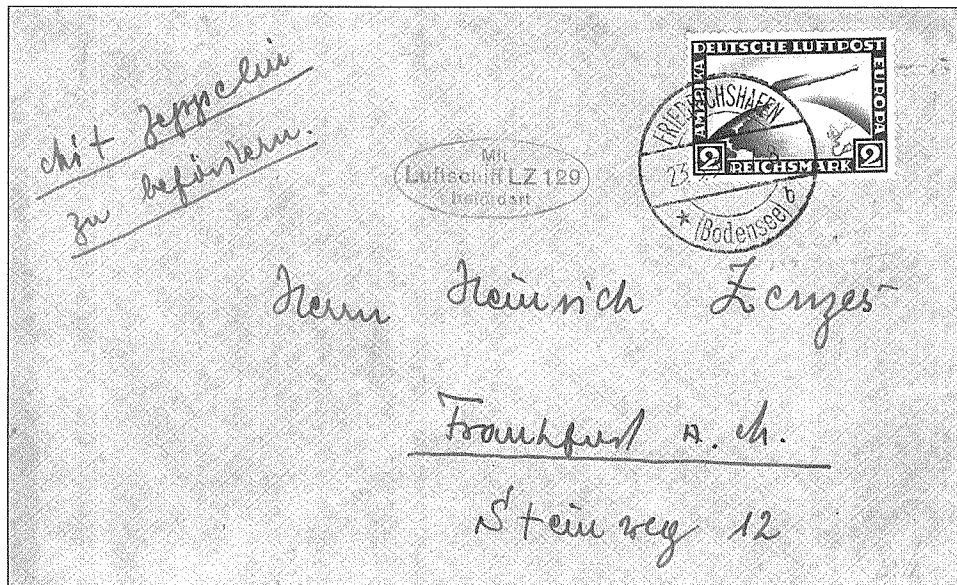 Mit Zeppelin
zu befördern.
Mit
Luftschiff LZ 129
befördert
DEUTSCHE LUFTPOST
AMERIKA
EUROPA
2 REICHSMARK 2
FRIEDRICHSHAFEN
23.
* (Bodensee) b
Herrn Heinrich
Frankfurt a. M.
Steinweg 12